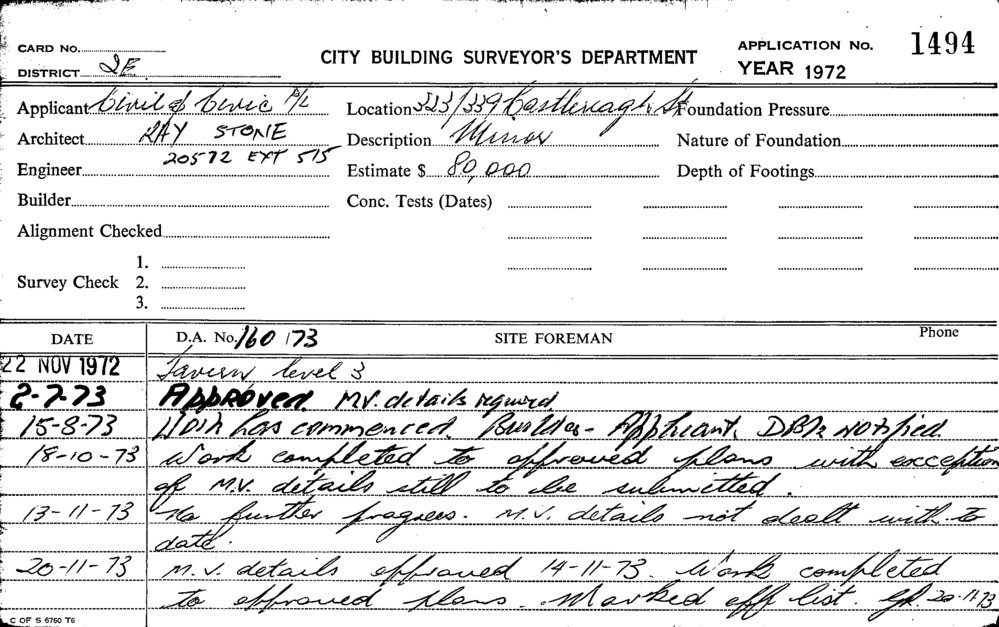 CARD No.
DISTRICT 2E
CITY BUILDING SURVEYOR'S DEPARTMENT
APPLICATION No. 1494
YEAR 1972
Applicant Civil & Civic P/L
Location 323/339 Castlereagh St
Foundation Pressure
Architect RAY STONE
Description Minor
Nature of Foundation
20572 EXT 515
Engineer
Estimate $ 80,000
Depth of Footings
Builder
Conc. Tests (Dates)
Alignment Checked
1.
Survey Check 2.
3.
DATE D.A. No. 160/73 SITE FOREMAN Phone
22 NOV 1972 Tavern level 3
2-7-73 Approved. M.V. details required
15-8-73 Work has commenced. Builder - Applicant. notified.
18-10-73 Work completed to approved plans with exception
of M.V. details still to be submitted.
13-11-73 No further progress. M.V. details not dealt with to
date.
20-11-73 M.V. details approved 14-11-73. Work completed
to approved plans. Marked off list. 20-11-73
C OF S 6760 T6